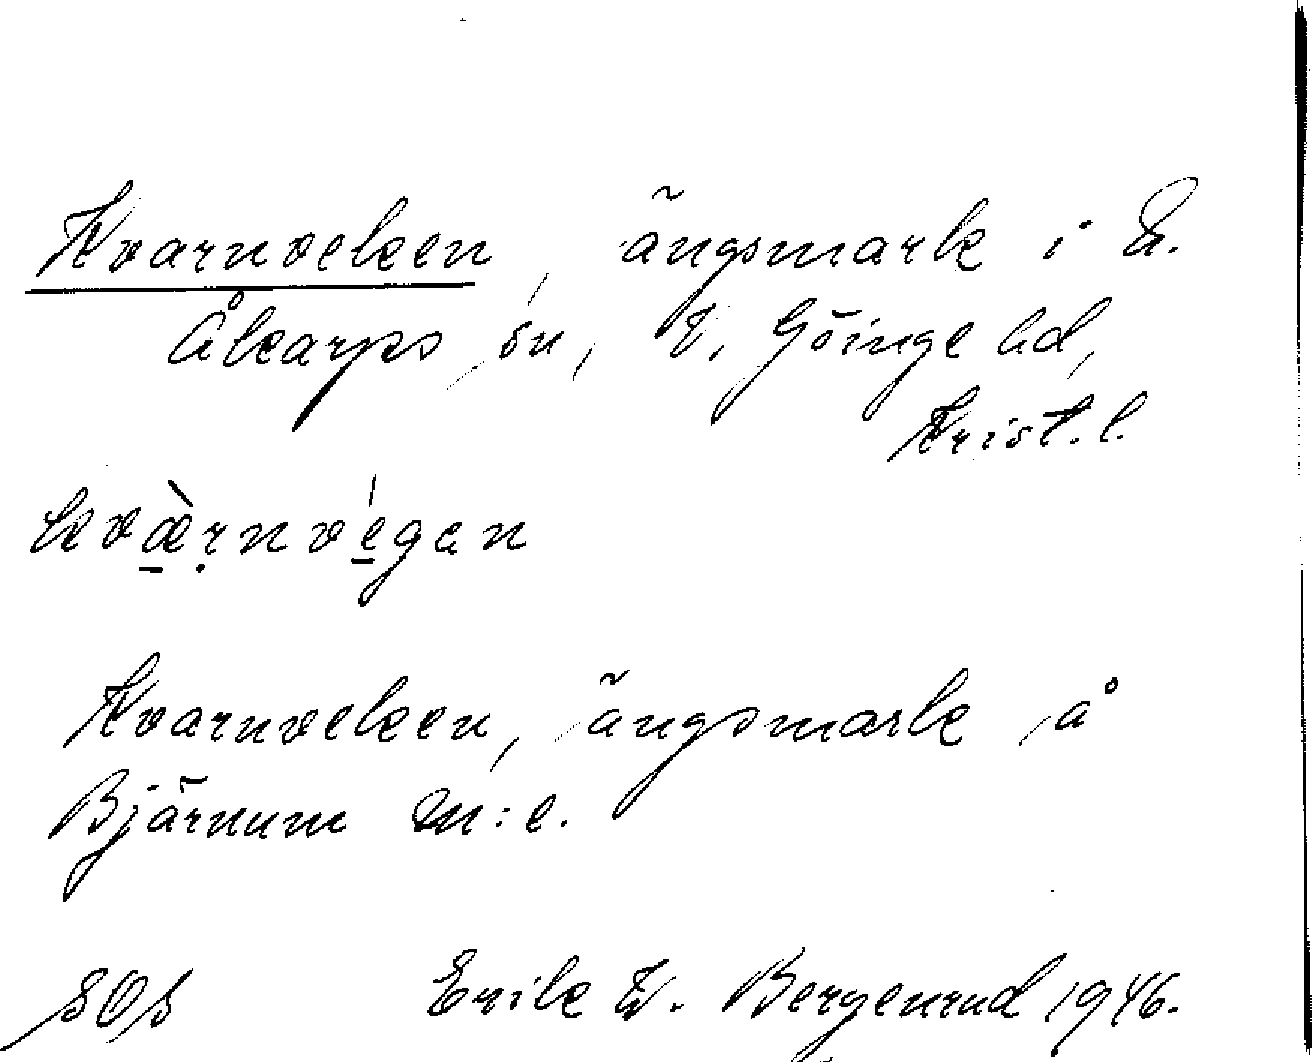 Kvarnveken, ängsmark i N.
Åkarps sn, V. Göinge hd,
Krist. l.
kvæ̀rnvégan
Kvarnveken, ängsmark å
Bjärnum m:e.
SOS Erik W. Bergenrud 1946.